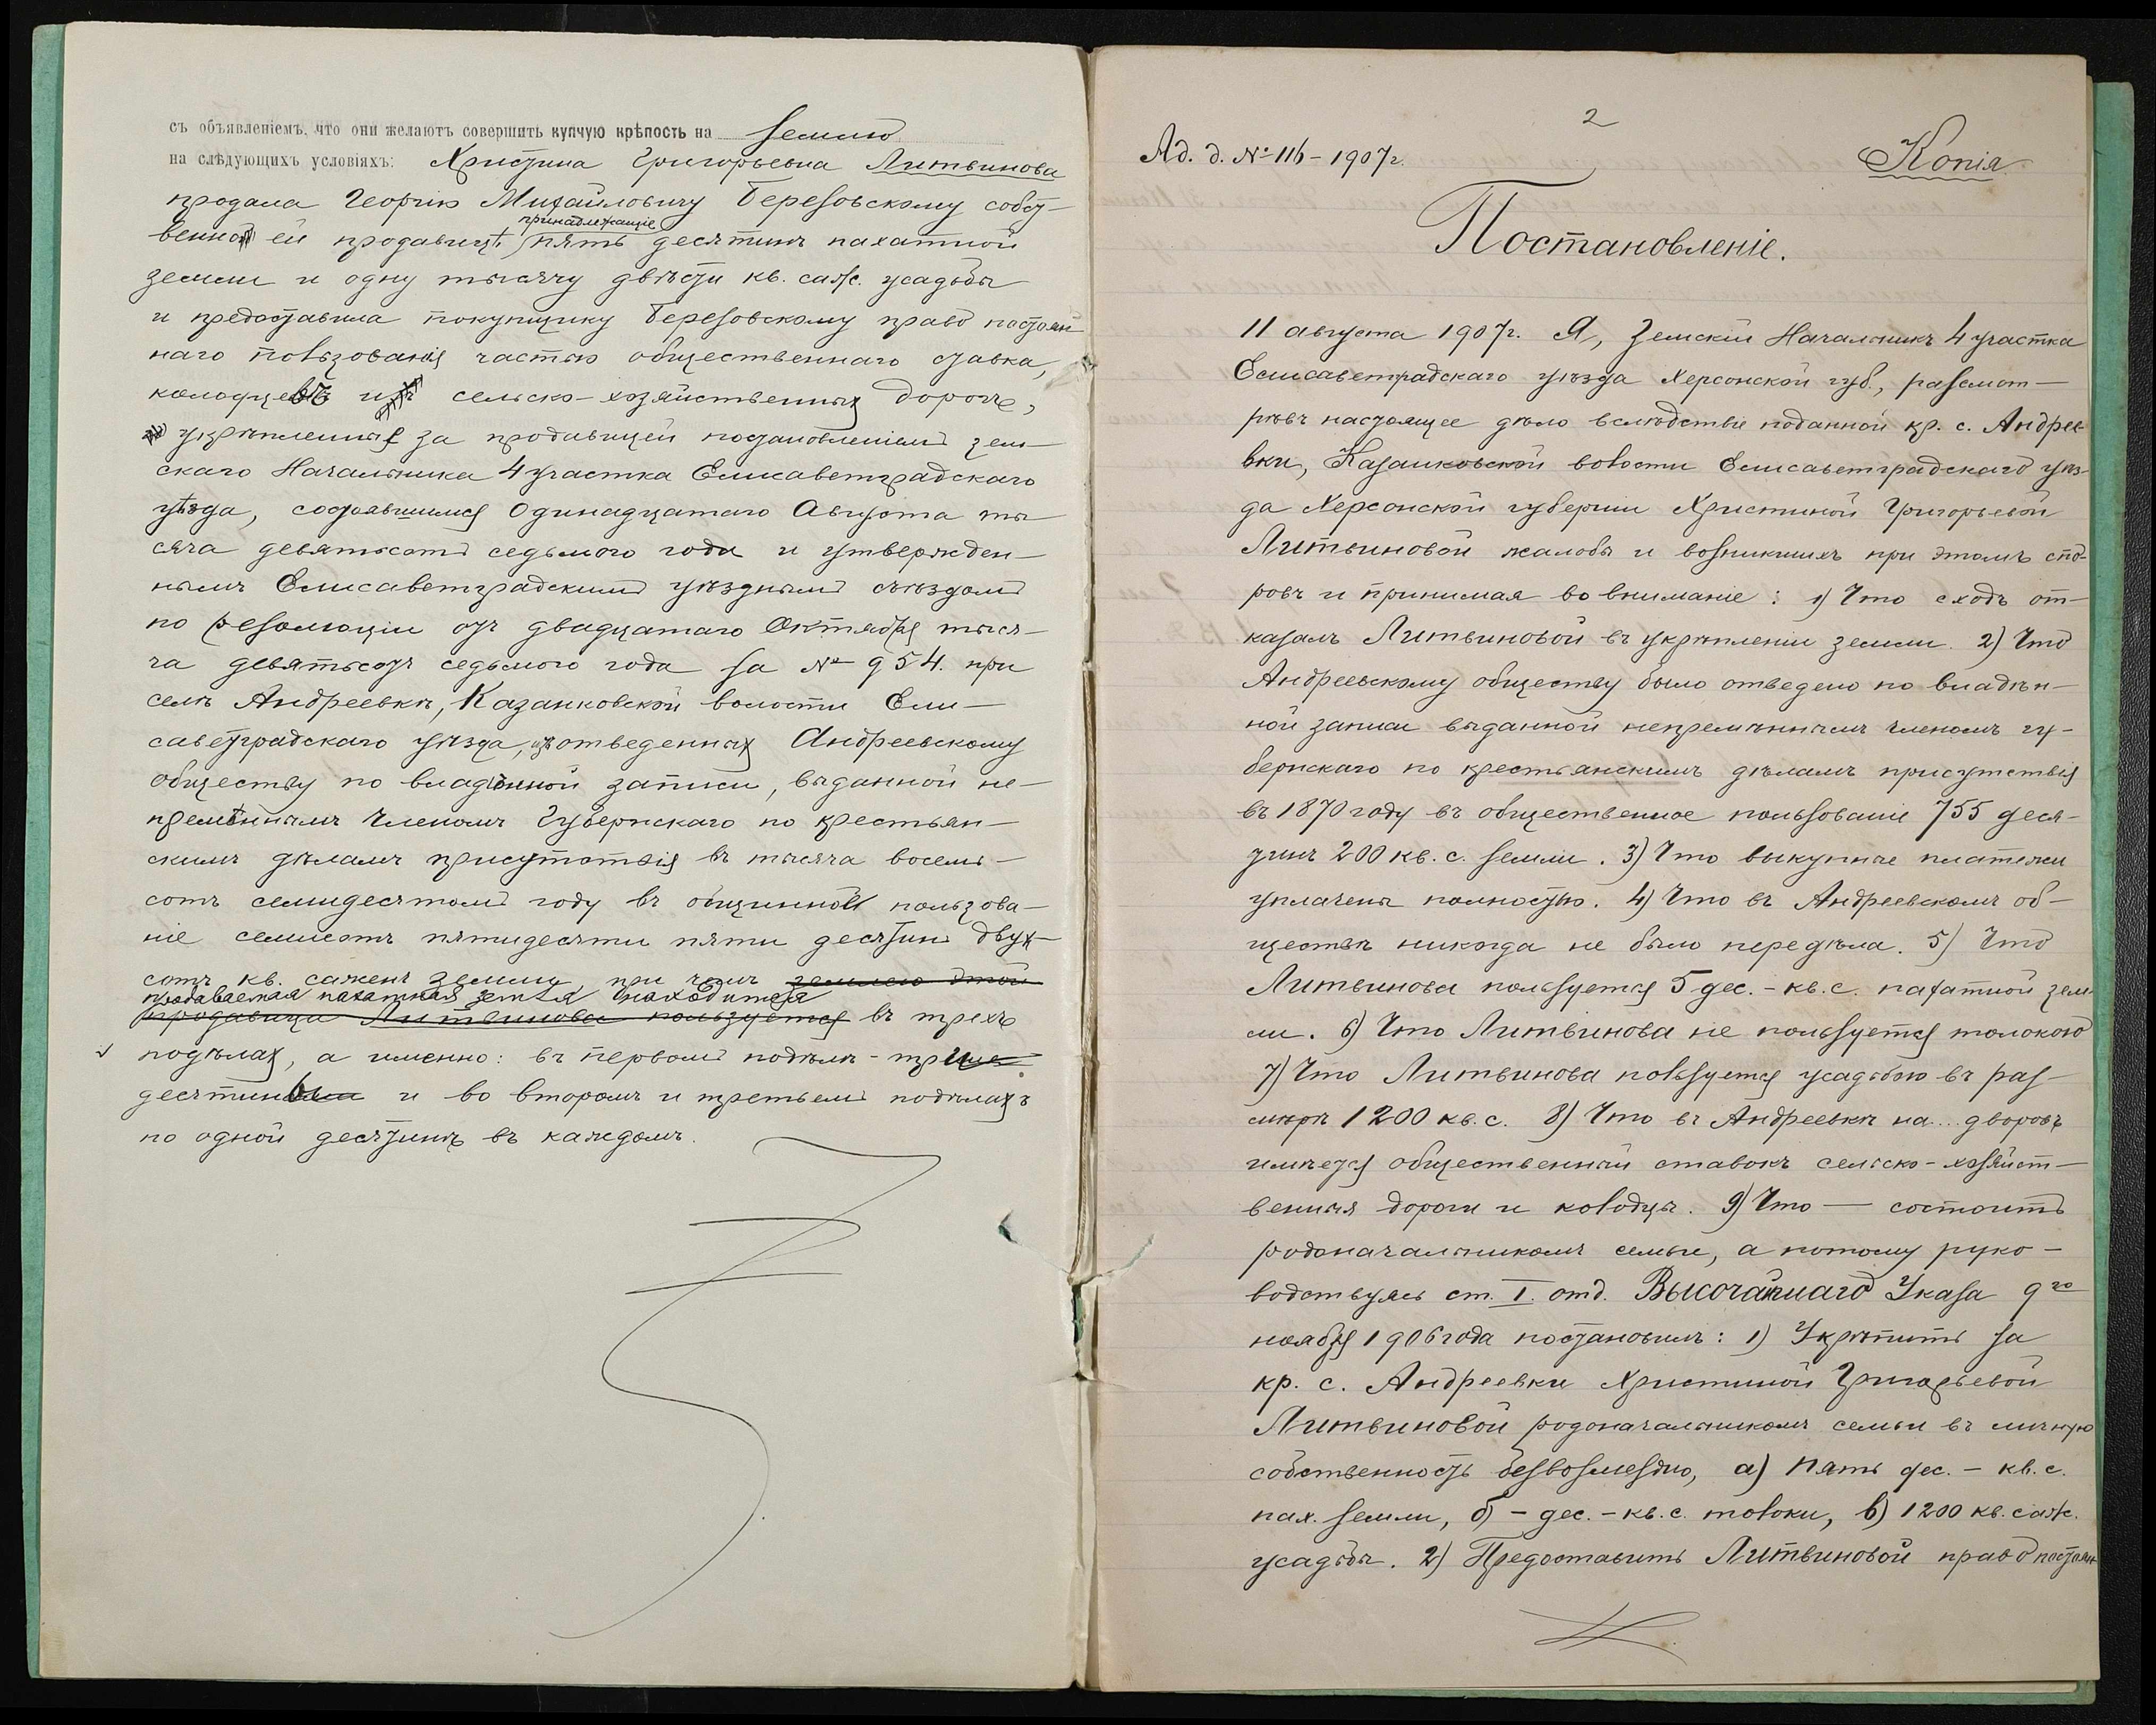 съ объявленіемъ, что они желаютъ совершить купчую крѣпость на землю
на слѣдующихъ условіяхъ: Христина Григорьевна Литвинова
продала Георгію Михайловичу Березовскому собст-
венно ей продавицѣ принадлежащіе пять десятинъ пахатной
земли и одну тысячу двѣсти кв. саж. усадьбы
и предоставила покупщику Березовскому право постоян
наго пользованія частью общественнаго ставка,
колодцевъ и сельско-хозяйственныхъ дорогъ,
укрѣпленныя за продавицей постановленіемъ зем-
скаго Начальника 4 участка Елисаветградскаго
уѣзда, состоявшимся Одинадцатаго Августа ты
сяча девятьсотъ седьмого года и утвержден-
нымъ Елисаветградскимъ уѣзднымъ съѣздомъ
по резолюціи отъ двадцатаго Октября тыся-
ча девятьсотъ седьмого года за № 954. при
селѣ Андреевкѣ, Казанковской волости Ели-
саветградскаго уѣзда, изъ отведенныхъ Андреевскому
обществу по владѣнной записи, выданной не-
премѣннымъ Членомъ Губернскаго по крестьян-
скимъ дѣламъ присутствія въ тысяча восемь-
сотъ семидесятомъ году въ общинное пользова-
ніе семисотъ пятидесяти пяти десятинъ двух-
сотъ кв. сажень земли при чемъ землею этой
продаваемая пахатная земля находится
продавица Литвинова пользуется въ трехъ
подѣлахъ, а именно: въ первомъ подѣлѣ - три
десятины и во второмъ и третьемъ подѣлахъ
по одной десятинѣ въ каждомъ.
2
Ад. д. № 116 - 1907 г.
Копія
Постановленіе.
11 августа 1907 г. Я, Земскій Начальникъ 4 участка
Елисаветградскаго уѣзда Херсонской губ., разсмот-
рѣвъ настоящее дѣло вслѣдствіе поданной кр. с. Андрее
вки, Казанковской волости Елисаветградскаго уѣз-
да Херсонской губерніи Христиной Григорьевой
Литвиновой жалобы и возникшихъ при этомъ спо-
ровъ и принимая во вниманіе: 1) Что сходъ от-
казалъ Литвиновой въ укрѣпленіи земли. 2) Что
Андреевскому обществу было отведено по владѣн-
ной записи выданной непремѣннымъ членомъ гу-
бернскаго по крестьянскимъ дѣламъ присутствія
въ 1870 году въ общественное пользованіе 755 деся-
тинъ 200 кв. с. земли. 3) Что выкупные платежи
уплачены полностью. 4) Что въ Андреевскомъ об-
ществѣ никогда не было передѣла. 5) Что
Литвинова пользуется 5 дес. - кв. с. пахатной зем-
ли. 6) Что Литвинова не пользуется толокою
7) Что Литвинова пользуется усадьбою въ раз-
мѣрѣ 1200 кв. с. 8) Что въ Андреевкѣ на... дворовъ
имѣется общественный ставокъ сельско-хозяйст-
венныя дороги и колодцы. 9) Что — состоитъ
родоначальникомъ семьи, а потому руко-
водствуясь ст. I. отд. Высочайшаго Указа 9го
ноября 1906 года постановилъ: 1) Укрѣпить за
кр. с. Андреевки Христиной Григорьевой
Литвиновой родоначальникомъ семьи въ личную
собственность безвозмездно, а) Пять дес. - кв. с.
пах. земли, б) - дес. - кв. с. толоки, в) 1200 кв. саж.
усадьбы. 2) Предоставить Литвиновой право постоян